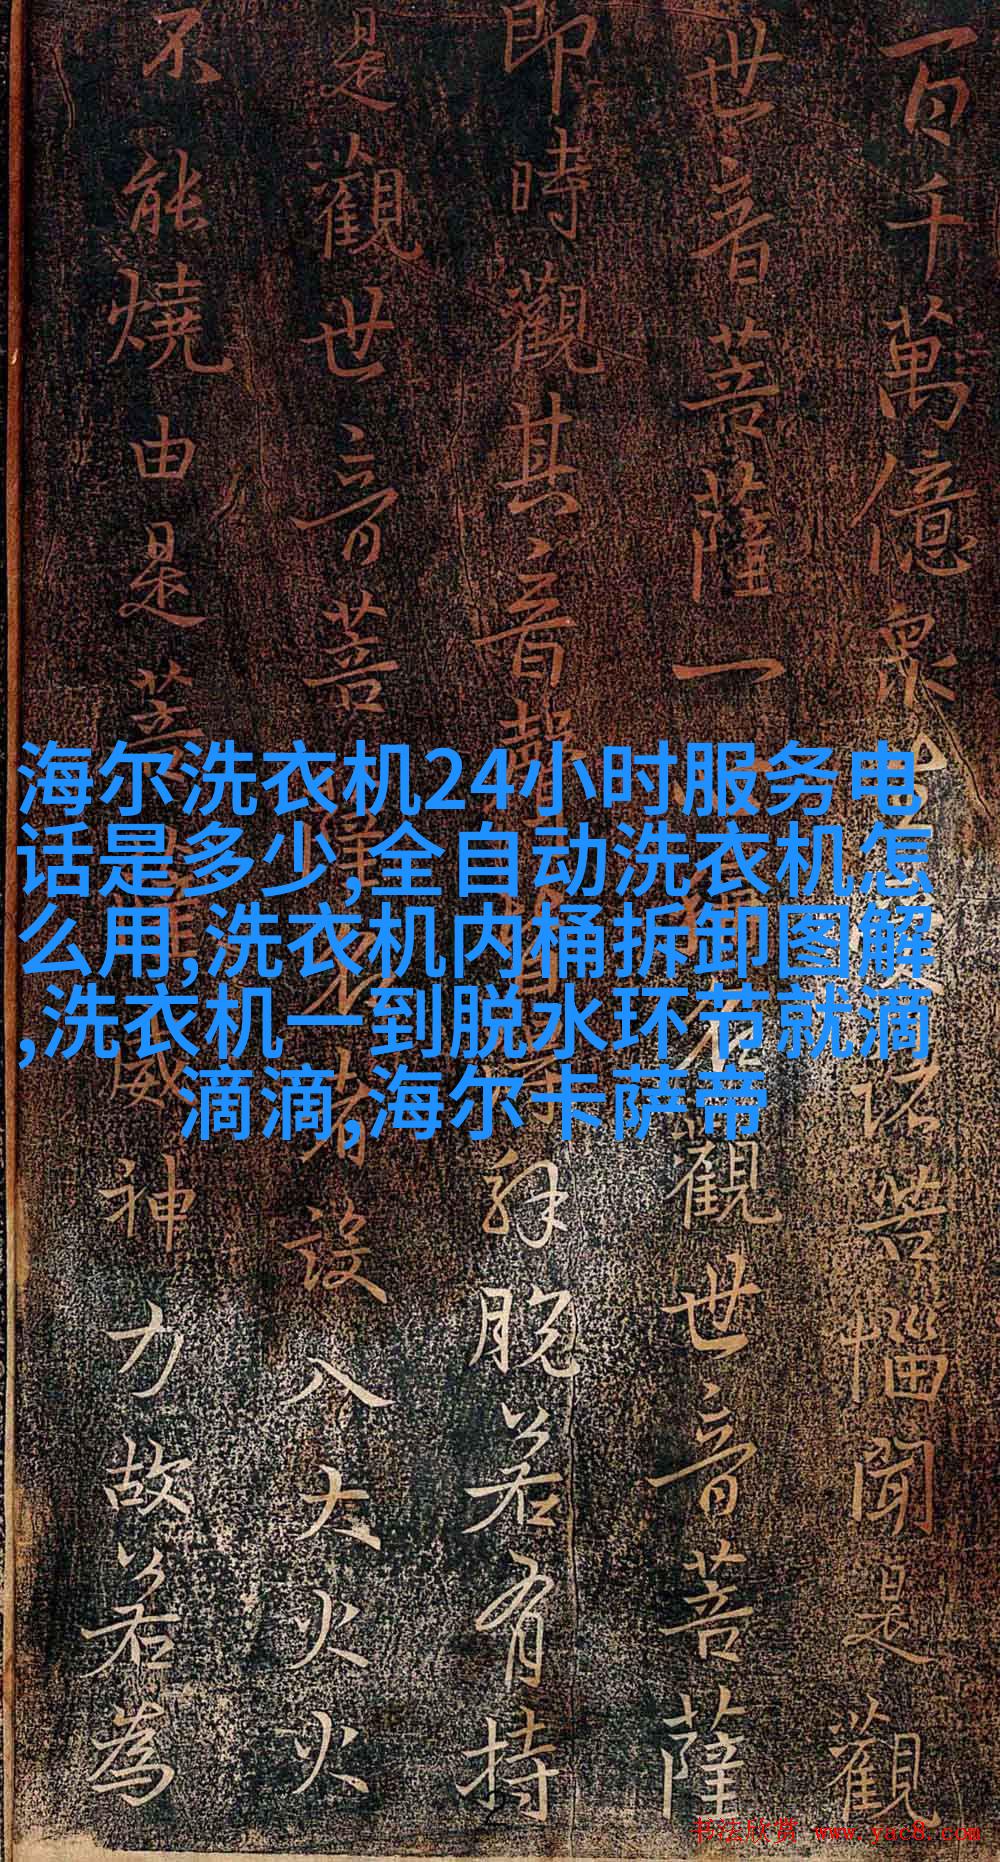 百千萬億眾生受諸苦惱聞是觀
世音菩薩一心稱名觀世音菩薩
即時觀其音聲皆得解脫若有持
是觀世音菩薩名者設入大火火
不能燒由是菩薩威神力故若為
海尔洗衣机24小时服务电
话是多少,全自动洗衣机怎
么用,洗衣机内桶拆卸图解
,洗衣机一到脱水环节就滴
滴滴,海尔卡萨帝
书法欣赏 www.yac8.com